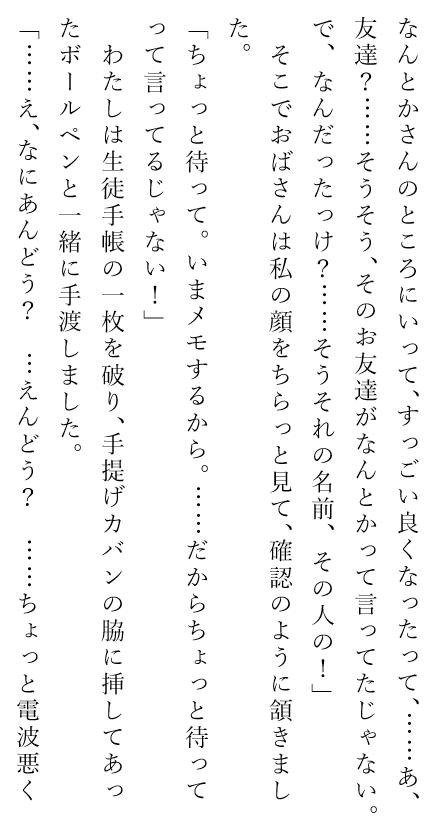 なんとかさんのところにいって、すっごい良くなったって、……あ、
友達？……そうそう、そのお友達がなんとかって言ってたじゃない。
で、なんだったっけ？……そうそれの名前、その人の！」
　そこでおばさんは私の顔をちらっと見て、確認のように頷きまし
た。
「ちょっと待って。いまメモするから。……だからちょっと待って
って言ってるじゃない！」
　わたしは生徒手帳の一枚を破り、手提げカバンの脇に挿してあっ
たボールペンと一緒に手渡しました。
「……え、なにあんどう？　…えんどう？　……ちょっと電波悪く